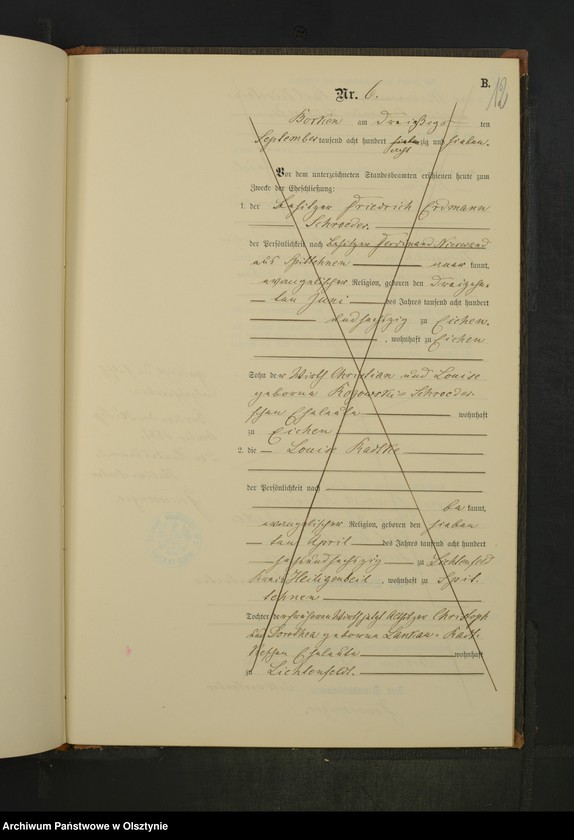 B.
12
Nr. 6.
Borken am Dreißigs ten
September tausend acht hundert siebenzig und sieben.
acht
Vor dem unterzeichneten Standesbeamten erschienen heute zum
Zwecke der Eheschließung:
1. der Besitzer Friedrich Erdmann
Schroeder.
der Persönlichkeit nach Besitzer Ferdinand
aus Spittehnen kannt,
evangelischer Religion, geboren den Dreizehn
ten Juni des Jahres tausend acht hundert
zu Eichen.
, wohnhaft zu Eichen
Sohn der Wirth Christian und Louise
geborne Schroeder
schen Eheleute wohnhaft
zu Eichen
2. die Louise Radtke
der Persönlichkeit nach
be kannt,
evangelischer Religion, geboren den sieben
ten April des Jahres tausend acht hundert
zu Lichtenfeldt
Kreis Heiligenbeil, wohnhaft zu Spit
tehnen
Tochter der früheren Wirth jetzt Altsitzer Christoph
und Dorothea geborne Radt
keschen Eheleute wohnhaft
zu Lichtenfeldt.
Archiwum Państwowe w Olsztynie